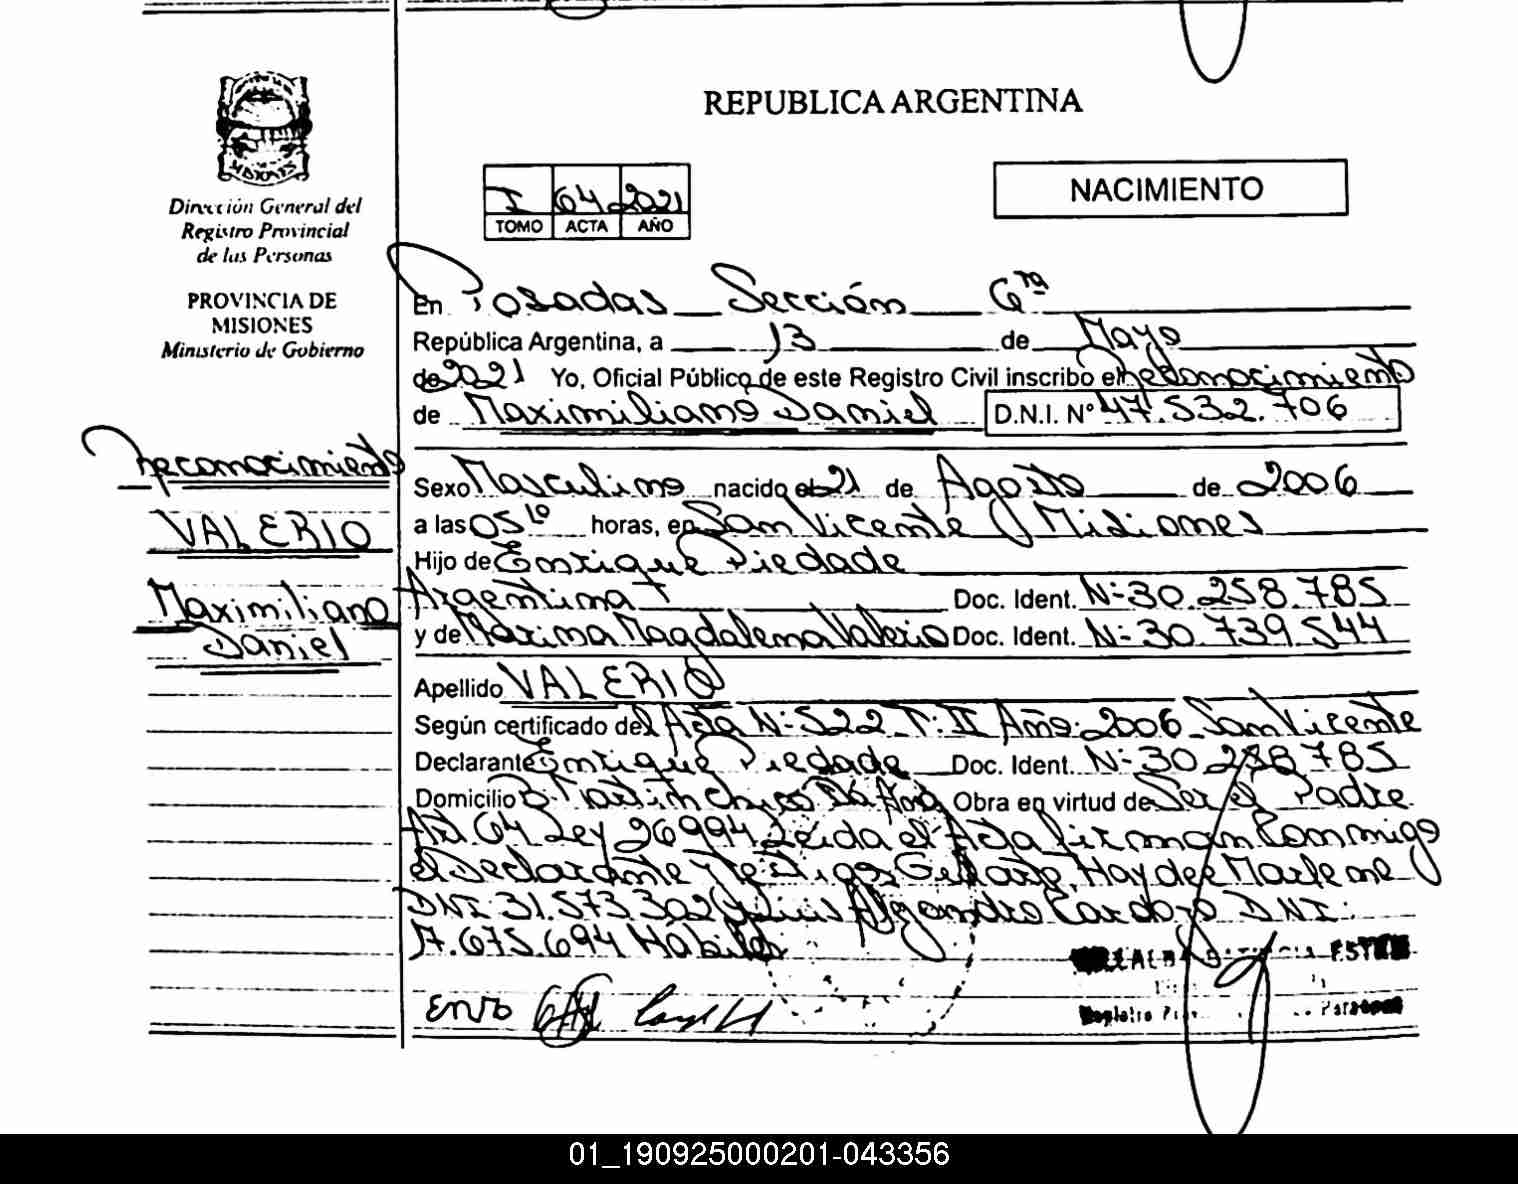 REPUBLICA ARGENTINA
MISIONES
Dirección General del
Registro Provincial
de las Personas
PROVINCIA DE
MISIONES
Ministerio de Gobierno
I 64 2021
TOMO ACTA AÑO
NACIMIENTO
En Posadas Sección 6ta
República Argentina, a 13 de Mayo
de 2021 Yo, Oficial Público de este Registro Civil inscribo el Reconocimiento
de Maximiliano Daniel D.N.I. N° 47.532.706
Reconocimiento
VALERIO
Maximiliano
Daniel
Sexo Masculino nacido el 21 de Agosto de 2006
a las 05 10 horas, en San Vicente Misiones
Hijo de Enrique Piedade
Argentina Doc. Ident. N: 30.258.785
y de Marina Magdalena Valerio Doc. Ident. N: 30.739.544
Apellido VALERIO
Según certificado del Acta N: 522 T: II Año: 2006 San Vicente
Declarante Enrique Piedade Doc. Ident. N: 30.258.785
Domicilio B: Martin Obra en virtud de Ser el Padre
Art 64 Ley 26994 Leida el Acta firman Conmigo
el Declarante y Testigos Haydee Marlene
DNI 31.573.302 y Luis Alejandro Cardozo DNI:
.675.694 Hábiles
Registro
01_190925000201-043356